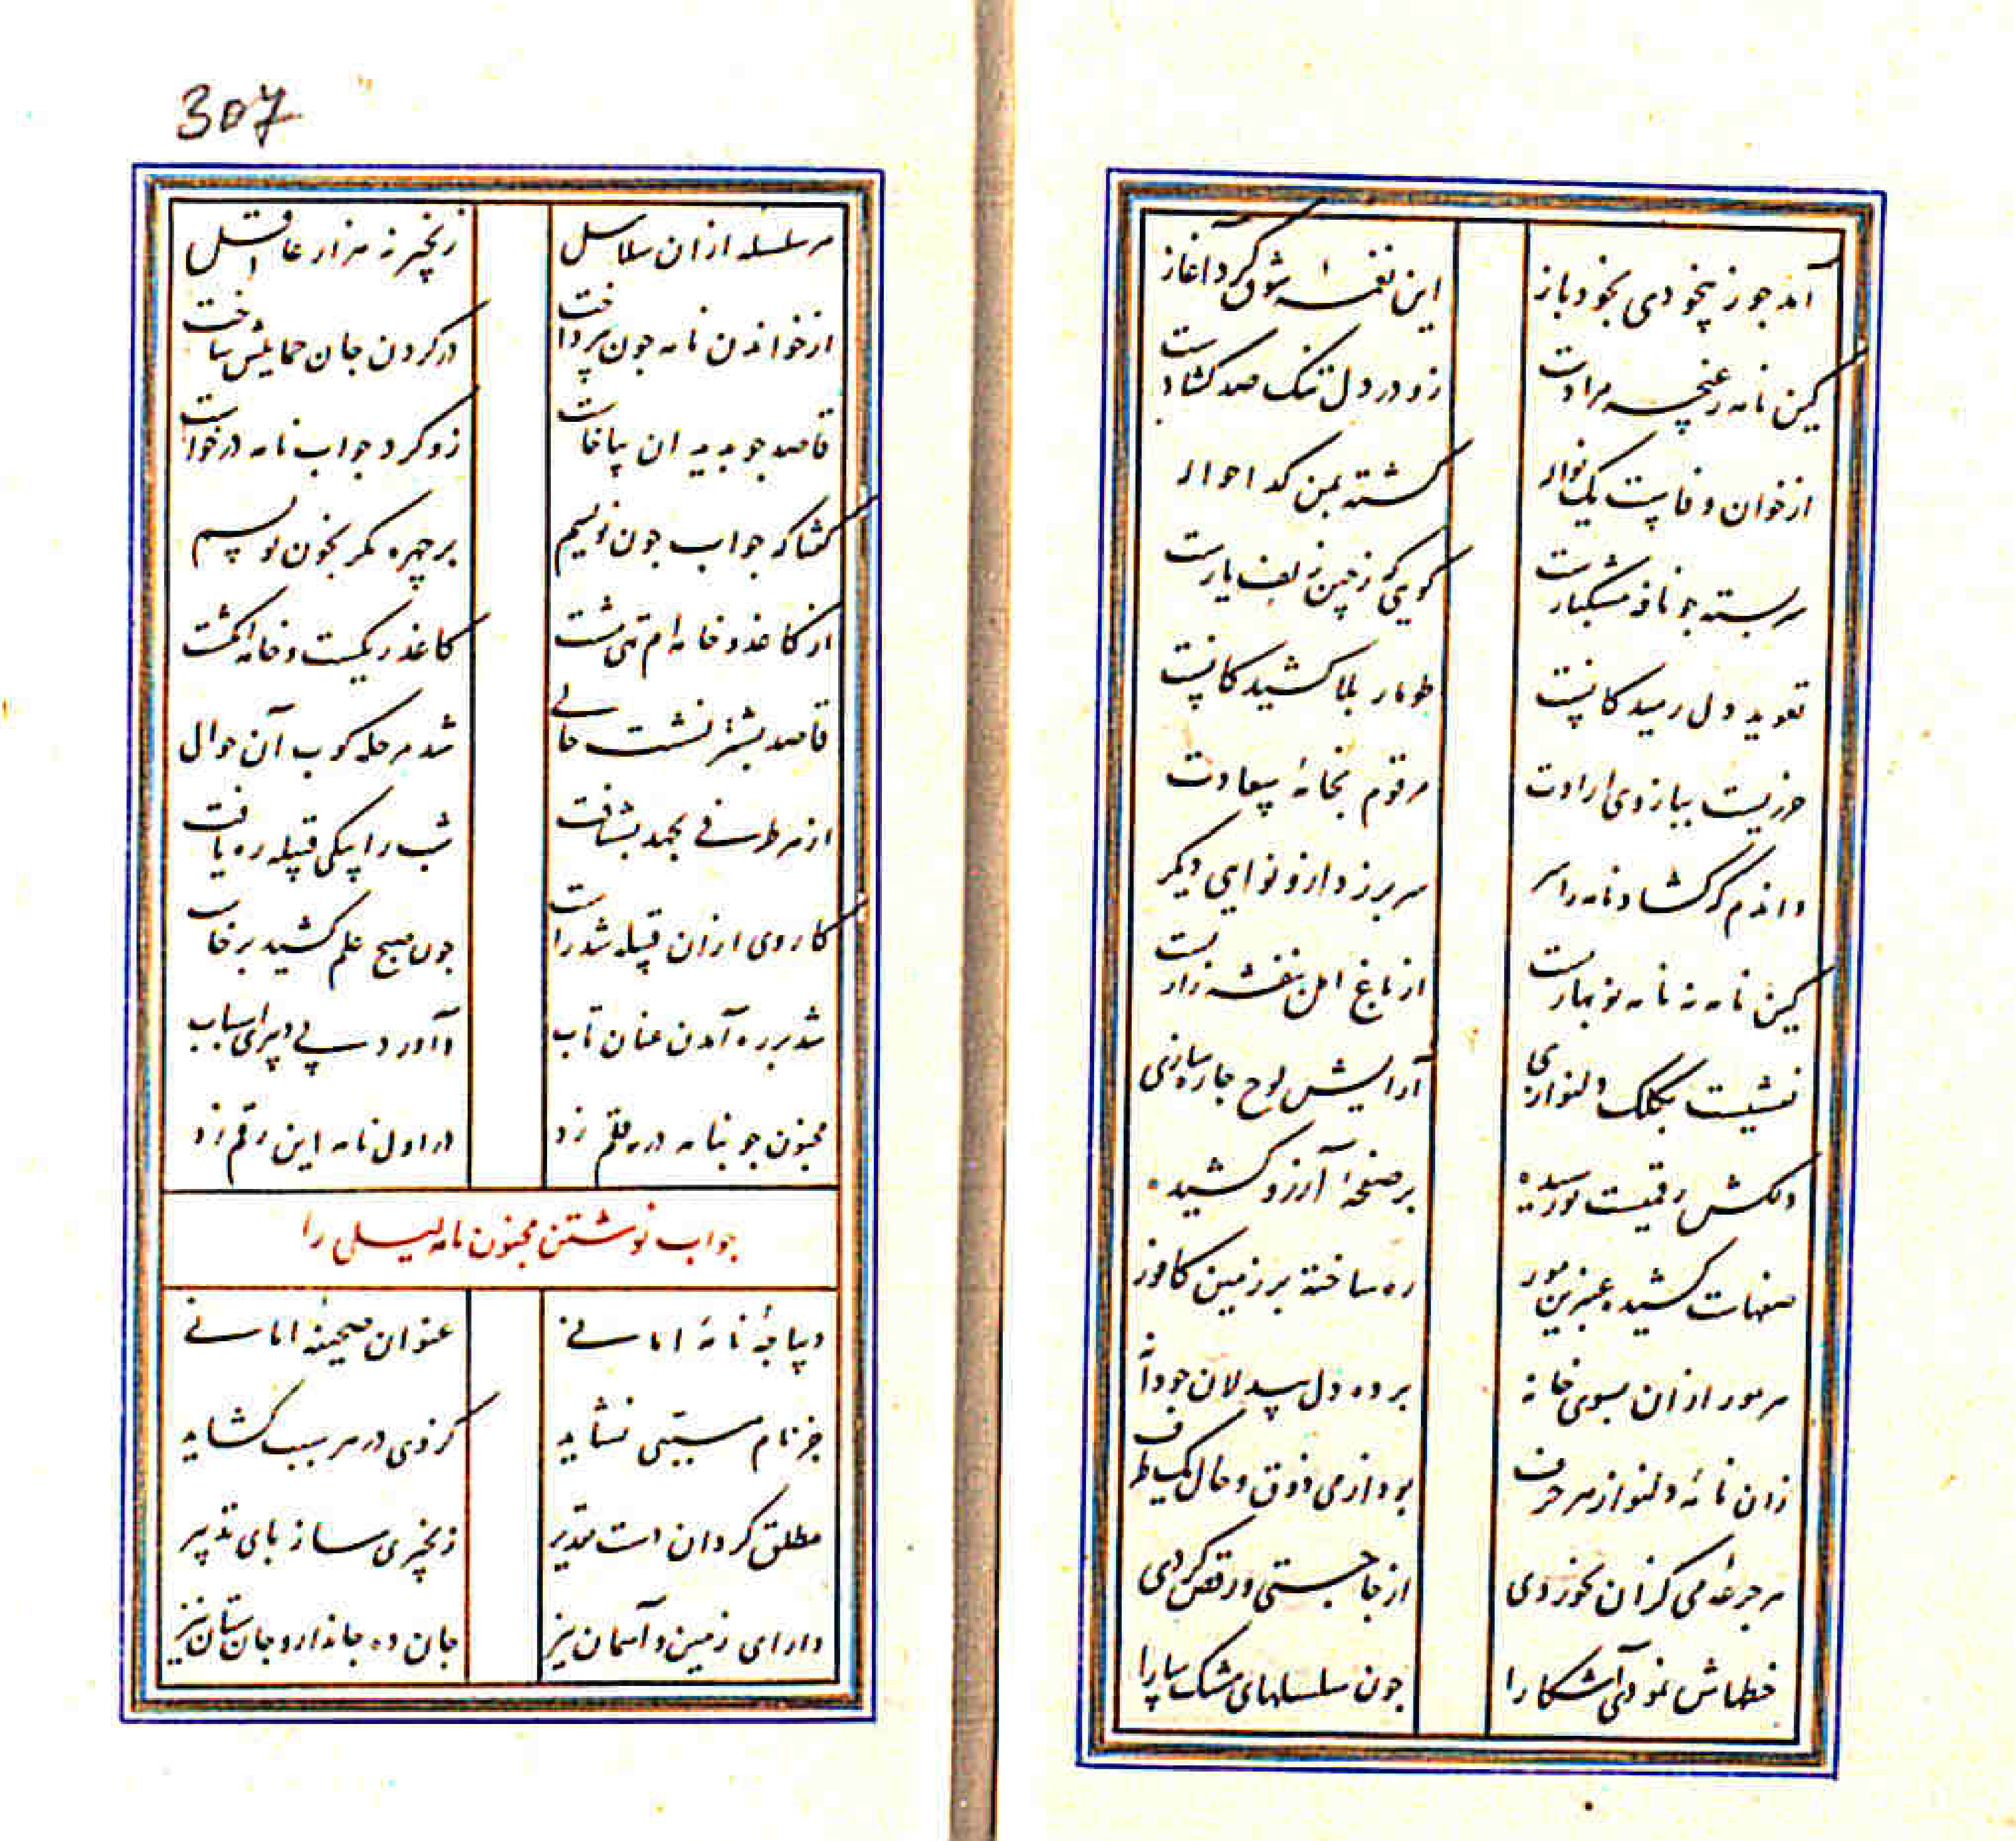 آمد جو ز بیخودی بخود باز
این نغمهٔ شوق کرد آغاز
کین نامه ز غنچهٔ مرادست
زو در دل تنک صد کشادست
از خوان وفاست یک نواله
کشته بمن کدا حواله
سربسته جو نافه مشکبارست
کویی که ز چین زلف یارست
تعوید دل رمیدکانست
طومار بلاکشیدکانست
حرزیست ببازوی ارادت
مرقوم بخامهٔ سعادت
واندم که کشاد نامه را سر
سر بر زد ازو نوایی دیکر
کین نامه نه نامه نوبهارست
از باغ امل بنفشه زارست
نقشیست بکلک دلنوازی
آرایش لوح جاره سازی
دلکش رقمیست نورسیده
بر صفحهٔ آرزو کشیده
صفهاست کشیده عنبرین مور
ره ساخته بر زمین کافور
هر مور ازان بسوی خانه
برده دل بیدلان جو دانه
زان نامهٔ دلنواز هر حرف
بود از می ذوق و حال یک ظرف
هر جرعهٔ می کزان بخوردی
از جا جستی و رقص کردی
خطهاش نمود آشکارا
جون سلسلهای مشک سارا
307
هر سلسله ازان سلاسل
زنجیر نه هزار عاقل
از خواندن نامه جون بپرداخت
در کردن جان حمایلش ساخت
قاصد جو بدید ان بپا خاست
زو کرد جواب نامه درخواست
کفتا که جواب جون نویسیم
بر چهره مکر بخون نویسیم
از کاغذ و خامه ام تهی مشت
کاغذ ریکست و خامه انکشت
قاصد بنشست حالی
شد مرحله کوب آن حوالی
از هر طرفی بجهد بشتافت
شب را بیکی قبیله ره یافت
کاروی ازان قبیله شد راست
جون صبح علم کشید برخاست
شد بر ره آمدن عنان تاب
وآورد پی دبیری اسباب
مجنون جو بنامه در قلم زد
در اول نامه این رقم زد
جواب نوشتن مجنون نامه لیلی را
دیباجهٔ نامهٔ امانی
عنوان صحیفهٔ امانی
جز نام مسببی نشاید
کز وی در هر سبب کشاید
مطلق کردان دست تقدیر
زنجیری ساز پای تدبیر
دارای زمین و آسمان نیز
جان ده جاندار و جان ستان نیز